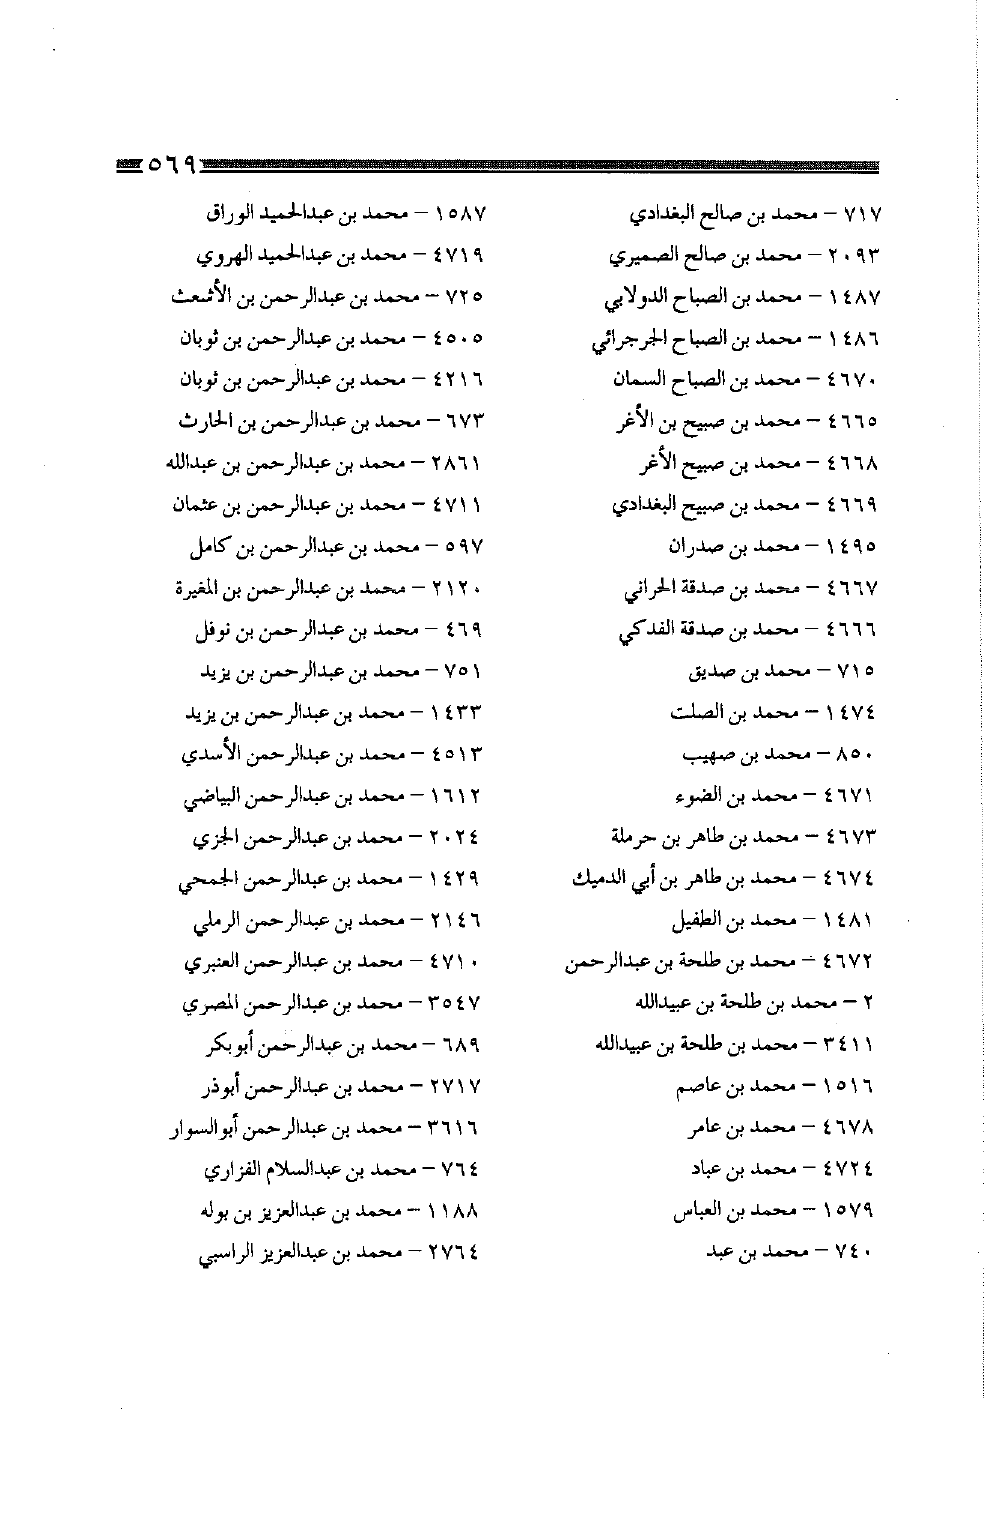 ٥٦٩
٧١٧ – محمد بن صالح البغدادي
٢٠٩٣ – محمد بن صالح الصميري
١٤٨٧ – محمد بن الصباح الدولابي
١٤٨٦ – محمد بن الصباح الجرجرائي
٤٦٧٠ – محمد بن الصباح السمان
٤٦٦٥ – محمد بن صبيح بن الأغر
٤٦٦٨ – محمد بن صبيح الأغر
٤٦٦٩ – محمد بن صبيح البغدادي
١٤٩٥ – محمد بن صدران
٤٦٦٧ – محمد بن صدقة الحراني
٤٦٦٦ – محمد بن صدقة الفدكي
٧١٥ – محمد بن صديق
١٤٧٤ – محمد بن الصلت
٨٥٠ – محمد بن صهيب
٤٦٧١ – محمد بن الضوء
٤٦٧٣ – محمد بن طاهر بن حرملة
٤٦٧٤ – محمد بن طاهر بن أبي الدميك
١٤٨١ – محمد بن الطفيل
٤٦٧٢ – محمد بن طلحة بن عبدالرحمن
٢ – محمد بن طلحة بن عبيدالله
٣٤١١ – محمد بن طلحة بن عبيدالله
١٥١٦ – محمد بن عاصم
٤٦٧٨ – محمد بن عامر
٤٧٢٤ – محمد بن عباد
١٥٧٩ – محمد بن العباس
٧٤٠ – محمد بن عبد
١٥٨٧ – محمد بن عبدالحميد الوراق
٤٧١٩ – محمد بن عبدالحميد الهروي
٧٢٥ – محمد بن عبدالرحمن بن الأشعث
٤٥٠٥ – محمد بن عبدالرحمن بن ثوبان
٤٢١٦ – محمد بن عبدالرحمن بن ثوبان
٦٧٣ – محمد بن عبدالرحمن بن الحارث
٢٨٦١ – محمد بن عبدالرحمن بن عبدالله
٤٧١١ – محمد بن عبدالرحمن بن عثمان
٥٩٧ – محمد بن عبدالرحمن بن كامل
٢١٢٠ – محمد بن عبدالرحمن بن المغيرة
٤٦٩ – محمد بن عبدالرحمن بن نوفل
٧٥١ – محمد بن عبدالرحمن بن يزيد
١٤٣٣ – محمد بن عبدالرحمن بن يزيد
٤٥١٣ – محمد بن عبدالرحمن الأسدي
١٦١٢ – محمد بن عبدالرحمن البياضي
٢٠٢٤ – محمد بن عبدالرحمن الجزي
١٤٢٩ – محمد بن عبدالرحمن الجمحي
٢١٤٦ – محمد بن عبدالرحمن الرملي
٤٧١٠ – محمد بن عبدالرحمن العنبري
٣٥٤٧ – محمد بن عبدالرحمن المصري
٦٨٩ – محمد بن عبدالرحمن أبوبكر
٢٧١٧ – محمد بن عبدالرحمن أبوذر
٣٦١٦ – محمد بن عبدالرحمن أبوالسوار
٧٦٤ – محمد بن عبدالسلام الفزاري
١١٨٨ – محمد بن عبدالعزيز بن بوله
٢٧٦٤ – محمد بن عبدالعزيز الراسبي